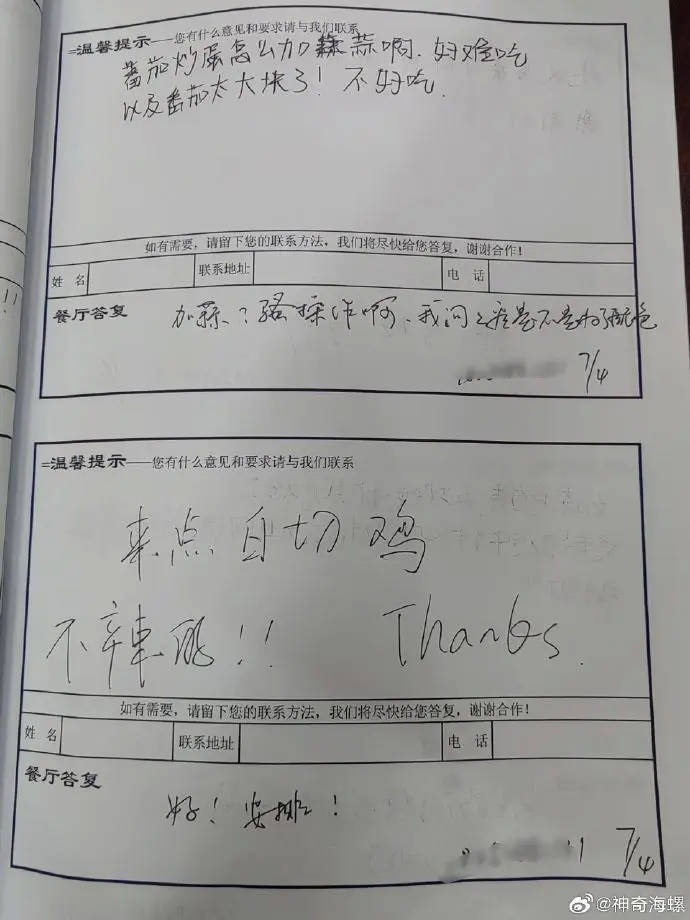 =温馨提示——您有什么意见和要求请与我们联系
蕃茄炒蛋怎么加蒜啊．好难吃
以及番茄太大块了！不好吃．
如有需要，请留下您的联系方法，我们将尽快给您答复，谢谢合作！
姓 名 联系地址 电 话
餐厅答复 加蒜？骚操作啊、我问之是不是为了配色
7/4
=温馨提示——您有什么意见和要求请与我们联系
来点白切鸡
不辣的!! Thanks.
如有需要，请留下您的联系方法，我们将尽快给您答复，谢谢合作！
姓 名 联系地址 电 话
餐厅答复
好！安排！
7/4
@神奇海螺